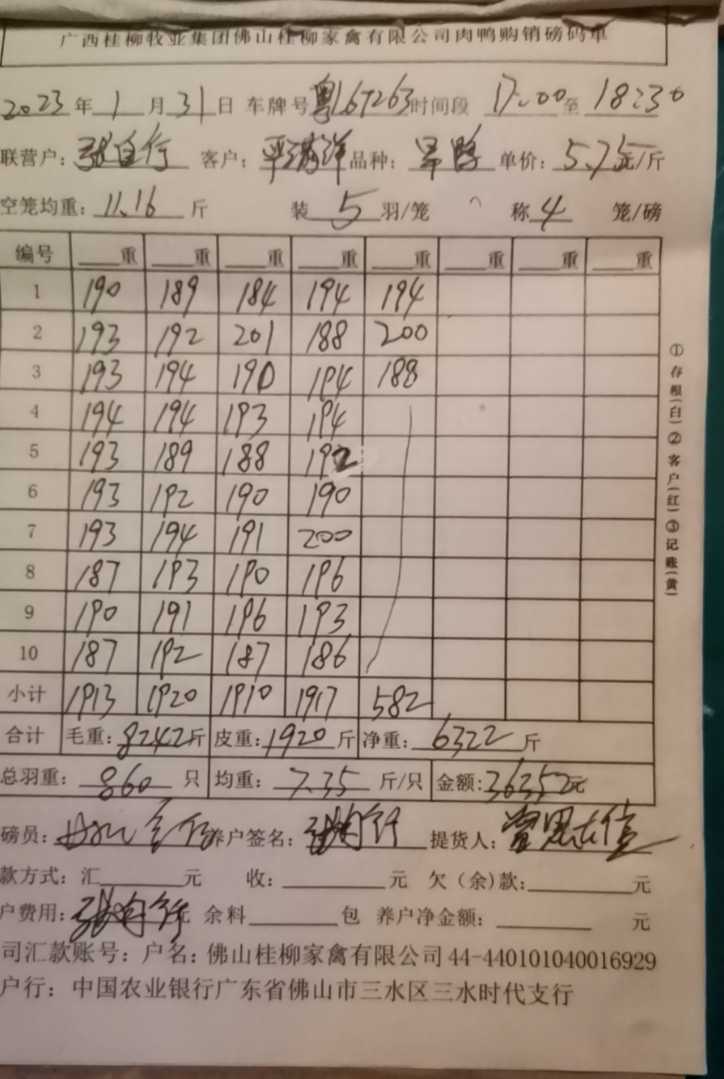 广西桂柳牧业集团佛山桂柳家禽有限公司肉鸭购销磅码单
2023年1月31日 车牌号 时间段 17:00至18:30
联营户: 客户: 品种: 单价:5.75元/斤
空笼均重:11.16斤 装5羽/笼 称4笼/磅
编号 重 重 重 重 重 重 重 重
1 190 189 184 194 194
2 193 192 201 188 200
3 193 194 190 194 188
4 194 194 193 194
5 193 189 188 192
6 193 192 190 190
7 193 194 191 200
8 187 193 190 196
9 190 191 196 193
10 187 192 187 186
小计 1913 1920 1910 1917 582
合计 毛重:8242斤 皮重:1920斤 净重:6322斤
总羽重:860只 均重:7.35斤/只 金额:36352元
磅员: 养户签名: 提货人:
款方式:汇 元 收: 元 欠(余)款: 元
户费用: 元 余料 包 养户净金额: 元
司汇款账号:户名:佛山桂柳家禽有限公司44-440101040016929
户行:中国农业银行广东省佛山市三水区三水时代支行
①存根(白)②客户(红)③记账(黄)